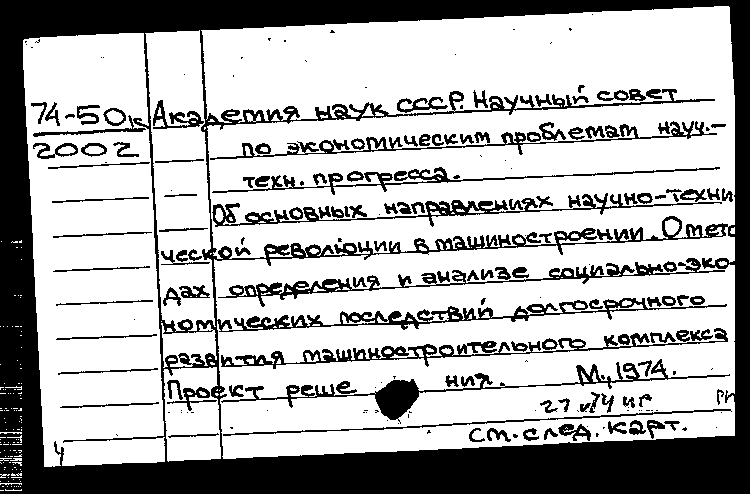 74-50к Академия наук СССР. Научный совет
2002 по экономическим проблемам науч.-
техн. прогресса.
Об основных направлениях научно-техни
ческой революции в машиностроении. О мето
дах определения и анализе социально-эко-
номических последствий долгосрочного
развития машиностроительного комплекса
Проект реше ния. М., 1974.
27
см. след. карт.
4